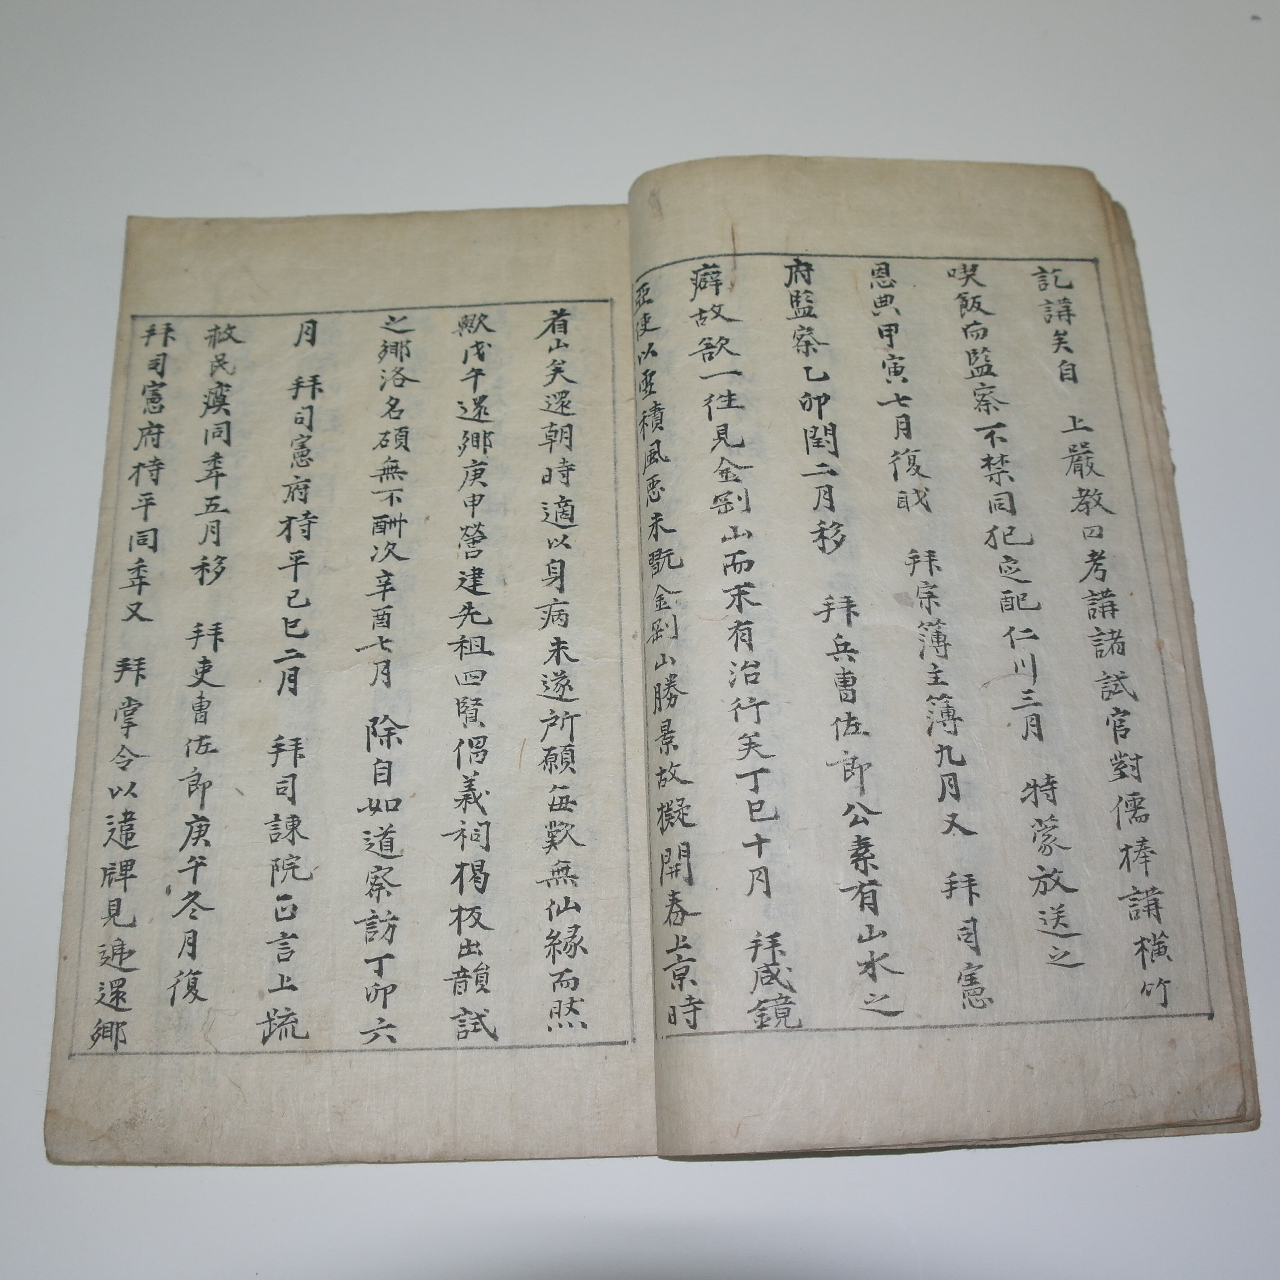 訖講矣自 上嚴教曰考講諸試官對儒捧講橫竹
喫飯而監察不禁同犯定配仁川三月 特蒙放送之
恩典甲寅七月復職 拜宗簿主簿九月又 拜司憲
府監察乙卯閏二月移 拜兵曹佐郎公素有山水之
癖故欲一往見金剛山而未有治行矣丁巳十月 拜咸鏡
亞使以雪積風惡未翫金剛山勝景故擬開春上京時
看山矣還朝時適以身病未遂所願每歎無仙緣而然
歟戊午還鄉庚申營建先祖四賢倡義祠楬板出韻試
之鄉洛名碩無不酬次辛酉七月 除自如道察訪丁卯六
月 拜司憲府持平己巳二月 拜司諫院正言上疏
救民瘼同年五月移 拜吏曹佐郎庚午冬月復
拜司憲府持平同年又 拜掌令以違牌見遞還鄉